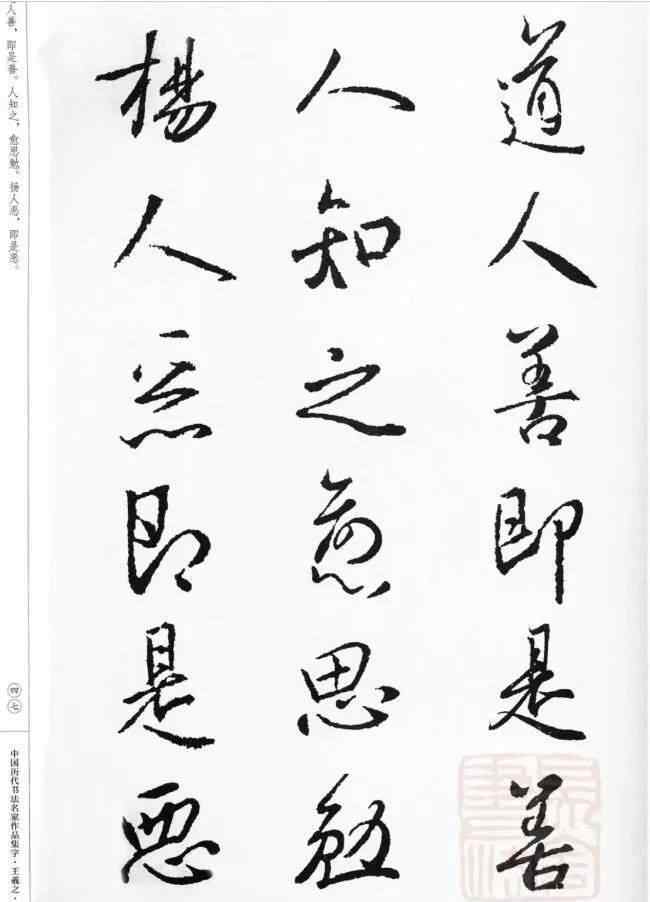 道人善即是善
人知之愈思勉
楊人惡即是惡
人善，即是善。人知之，愈思勉。扬人恶，即是恶。
四七
中国历代书法名家作品集字·王羲之·